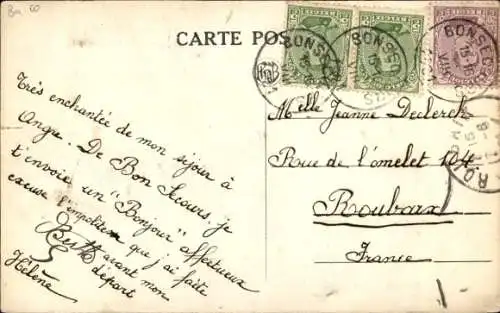 CARTE POS
BONSEC
BONSE
BONSEC
Très enchantée de mon séjour à
Angre. De Bon Secours, je
t'envoie un "Bonjour" affectueux
excuse l'impolitesse que j'ai faite
avant mon
départ
Hélène
Melle Jeanne Declerck
Rue de l'omelet 104
Roubaix
France